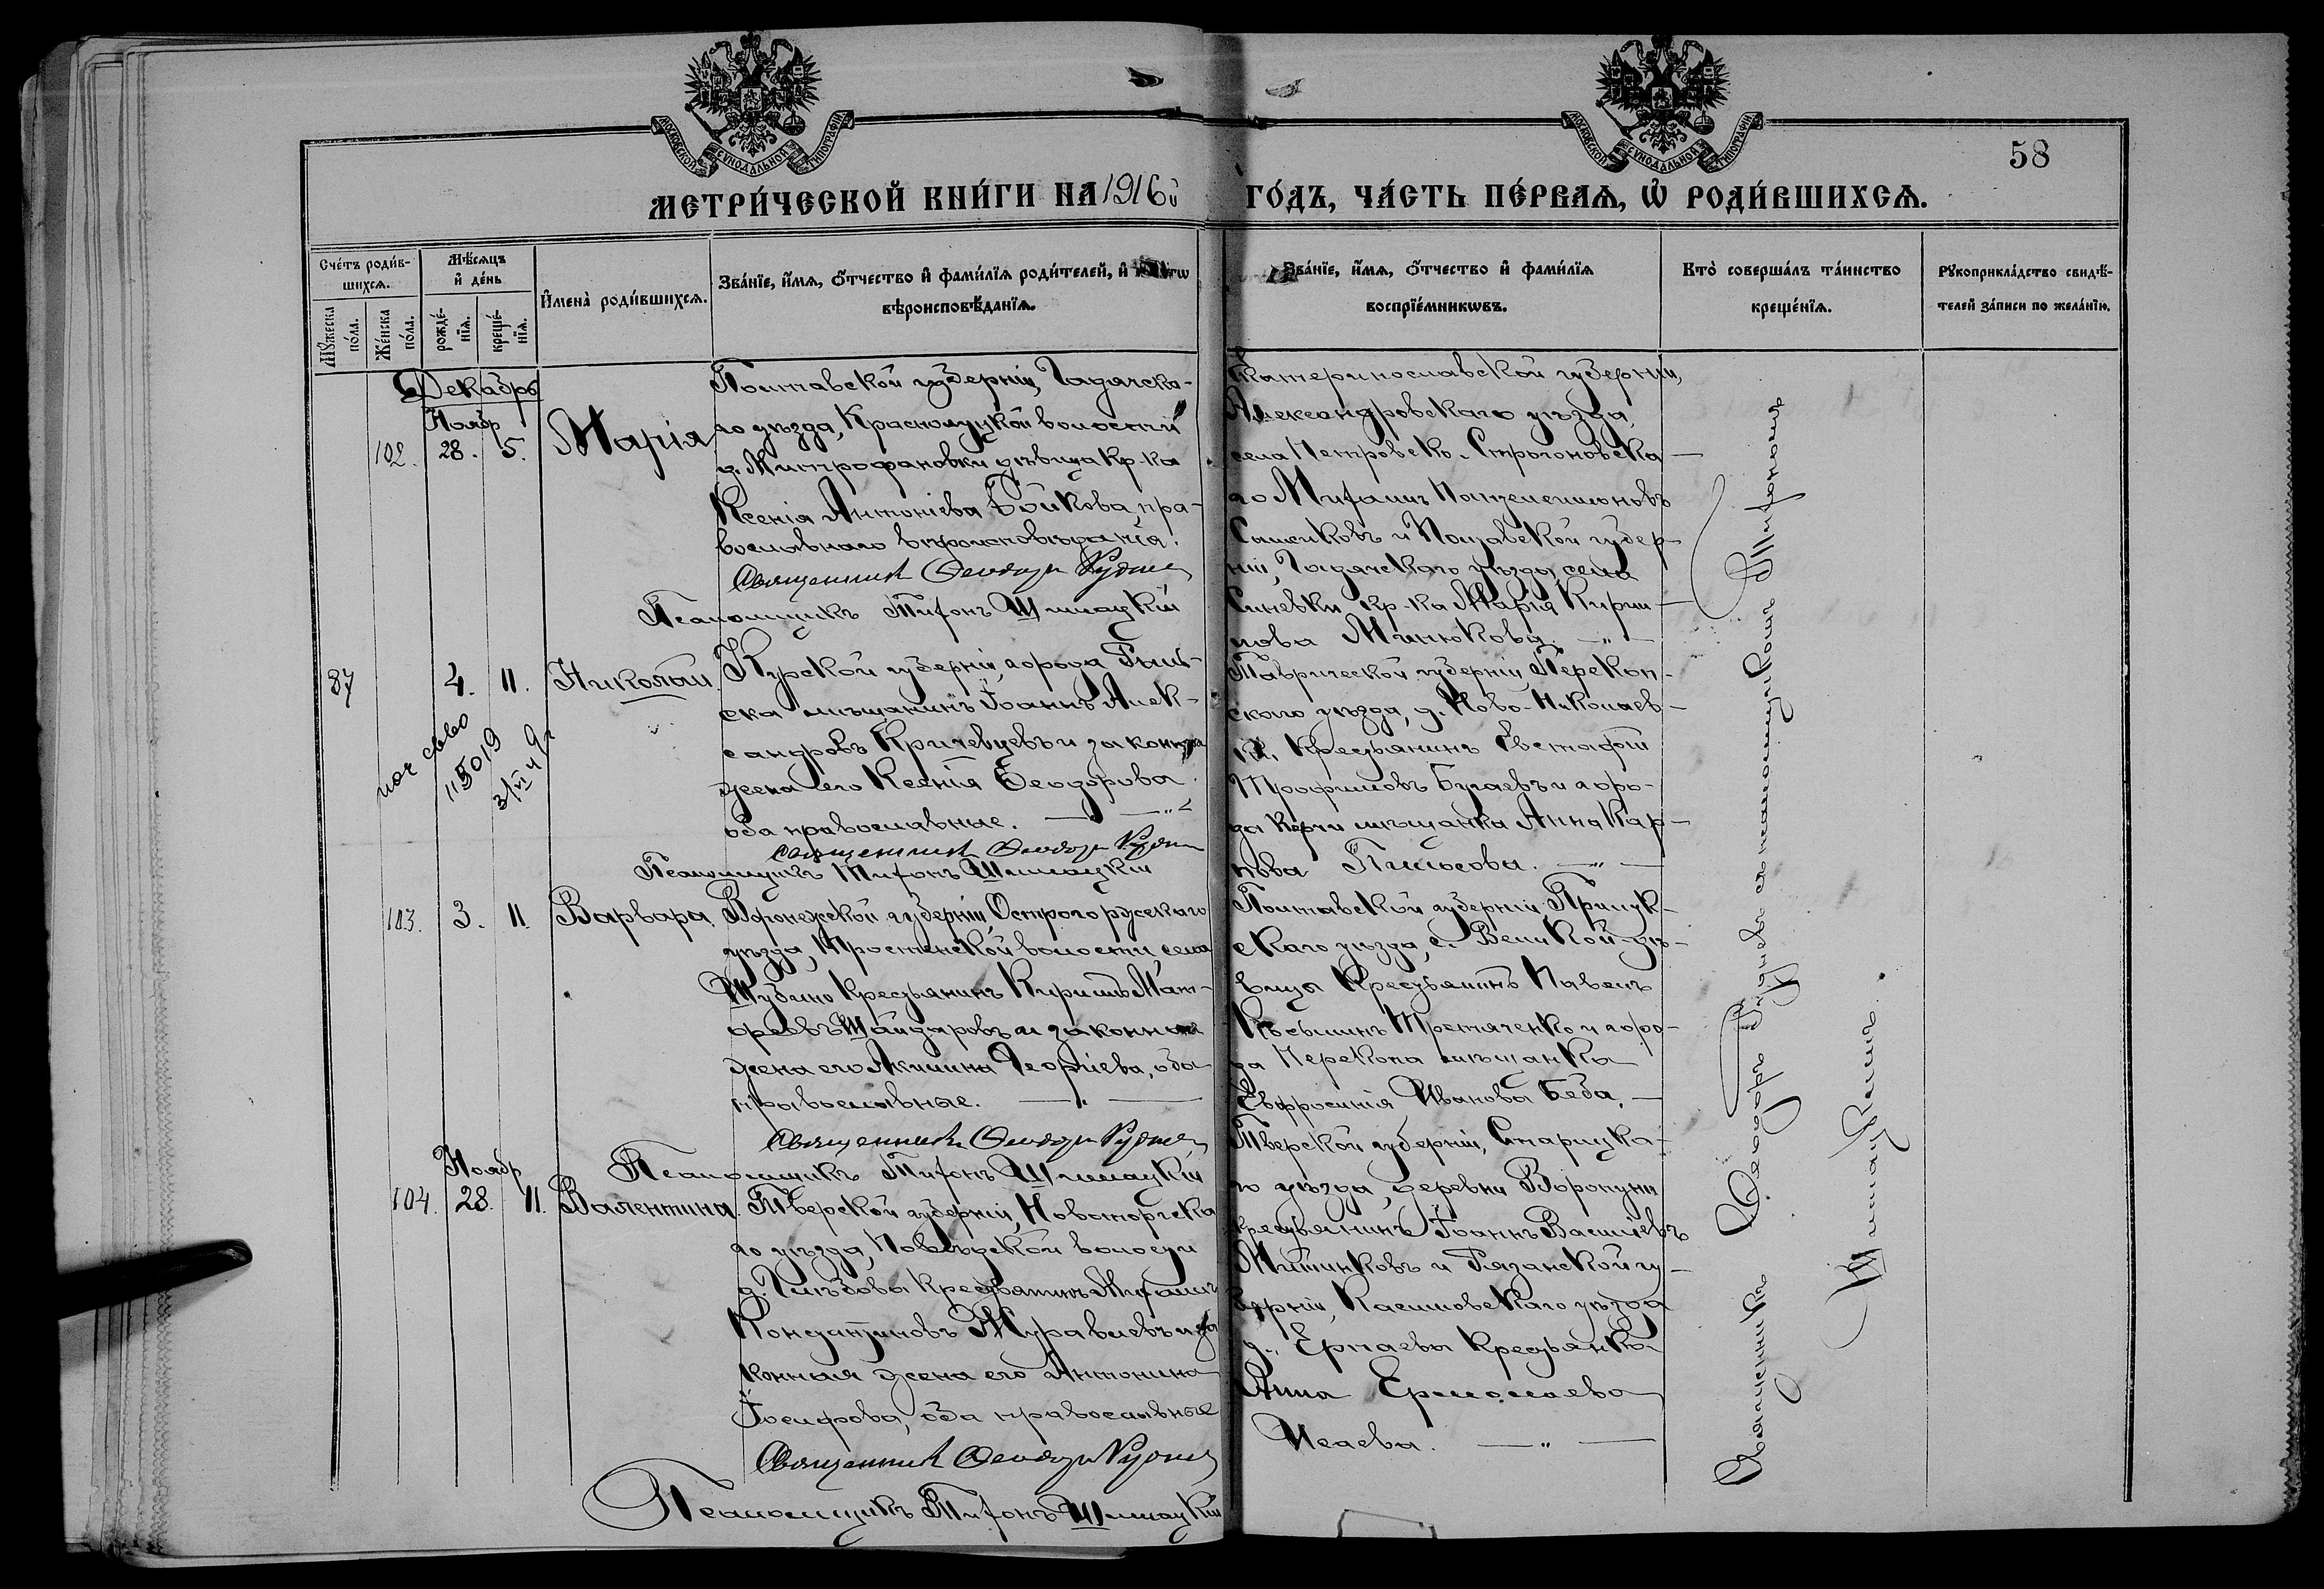 МОСКОВСКОЙ СѴНОДАЛЬНОЙ ТИПОГРАФІИ
МОСКОВСКОЙ СѴНОДАЛЬНОЙ ТИПОГРАФІИ
58
МЕТРИ́ЧЕСКОЙ КНИ́ГИ НА 1916й ГО́ДЪ, ЧА́СТЬ ПЕ́РВАѦ, Ѡ҆ РОДИ́ВШИХСѦ.
Сче́тъ роди́в-
шихсѧ.
Мꙋ́жеска по́ла.
Же́нска по́ла.
Мѣ́сѧцъ
и҆ де́нь
рожде́-
нїѧ.
креще́-
нїѧ.
И҆мена̀ роди́вшихсѧ.
Зва́нїе, и҆́мѧ, ѻ҆́тчество и҆ фами́лїѧ роди́телей, и҆
вѣроисповѣ́данїѧ.
Зва́нїе, и҆́мѧ, ѻ҆́тчество и҆ фами́лїѧ
воспрїе́мникѡвъ.
Кто̀ соверша́лъ та́инство
креще́нїѧ.
Рꙋкоприкла́дство свидѣ́-
телей за́писи по жела́нїю.
Декабрь
Ноябр
102. 28. 5. Марія
Полтавской губерніи, Гадячска-
го уѣзда, Краснолуцкой волости
д. Митрофановки дѣвица кр-ка
Ксенія Антоніева Бойкова, пра-
вославнаго вѣроисповѣданія.
Священник Феодор Руднев
Псаломщикъ Тихонъ Шпицкій
Екатеринославской губерніи,
Александровскаго уѣзда
села Петровско-
го Михаилъ Пантелеимоновъ
и Полтавской губер-
ніи, Гадячскаго уѣзда, села
Синевки кр-ка Марія Кирил-
лова Минюкова. — „ —
87 4. 11. Николай
1150/9
3/VI 49
Курской губерніи, города Рыль-
ска мѣщанинъ Іоаннъ Алек-
сандровъ Кричевцевъ и законная
жена его Ксенія Феодорова
оба православные. — „
Священник Феодор Руднев
Псаломщикъ Тихонъ Шпицкій
Таврической губерніи, Перекоп-
скаго уѣзда, д. Ново-Николаев-
ки, крестьянинъ Евстафій
Трофимовъ Бугаевъ и горо-
да Керчи мѣщанка Анна Кар-
пова — „ —
103. 3. 11. Варвара
Воронежской губерніи, Острогожскаго
уѣзда, волости, села
крестьянинъ Кириллъ Мат-
ѳеевъ Шайдаровъ и законная
жена его Акилина Георгіева, оба
православные. — „ —
Священник Феодор Руднев
Псаломщикъ Тихонъ Шпицкій
Полтавской губерніи, Прилук-
скаго уѣзда, с. Великой-Дѣ-
вицы крестьянинъ Павелъ
Третяченко и горо-
да Перекопа мѣщанка
Евфросинія Иванова Беда. —
Ноябр
104. 28. 11. Валентина.
Тверской губерніи, Новоторжска-
го уѣзда, Поведской волости
д. Глѣбова крестьянинъ Михаилъ
Муравьевъ и за-
конная жена его Антонина
Іосифова, оба православные
Священник Феодор Руднев
Псаломщикъ Тихонъ Шпицкій
Тверской губерніи, Старицка-
го уѣзда, деревни
крестьянинъ Іоаннъ Васильевъ
и Рязанской гу-
берніи, Касимовскаго уѣзда
д. крестьянка
Анна Ермолаева
Исаева. — „ —
Священникъ Феодоръ Рудневъ съ псаломщикомъ Тихономъ